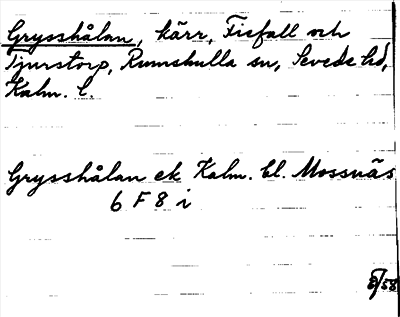 Grysshålan, kärr, Fisfall och
Tjurstorp, Rumskulla sn, Sevede hd,
Kalm. l.
Grysshålan ek Kalm. bl. Mossnäs
6 F 8 i
/58